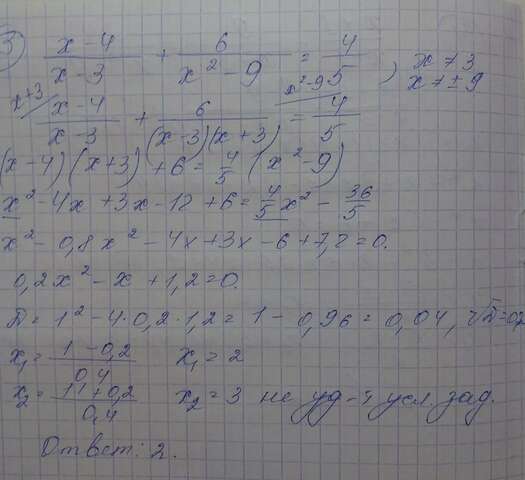 3) (x-4)/(x-3) + 6/(x²-9) = 4/5 , x≠3 x≠±9
x+3/ (x-4)/(x-3) + 6/((x-3)(x+3)) = x²-9/ 4/5
(x-4)(x+3)+6 = 4/5 (x²-9)
x²-4x+3x-12+6 = 4/5 x² - 36/5
x²-0,8x²-4x+3x-6+7,2=0.
0,2x²-x+1,2=0.
D = 1²-4·0,2·1,2 = 1-0,96 = 0,04, √D=0,2
x₁ = (1-0,2)/0,4 x₁=2
x₂ = (1+0,2)/0,4 x₂=3 не уд-т усл. зад.
Ответ: 2.